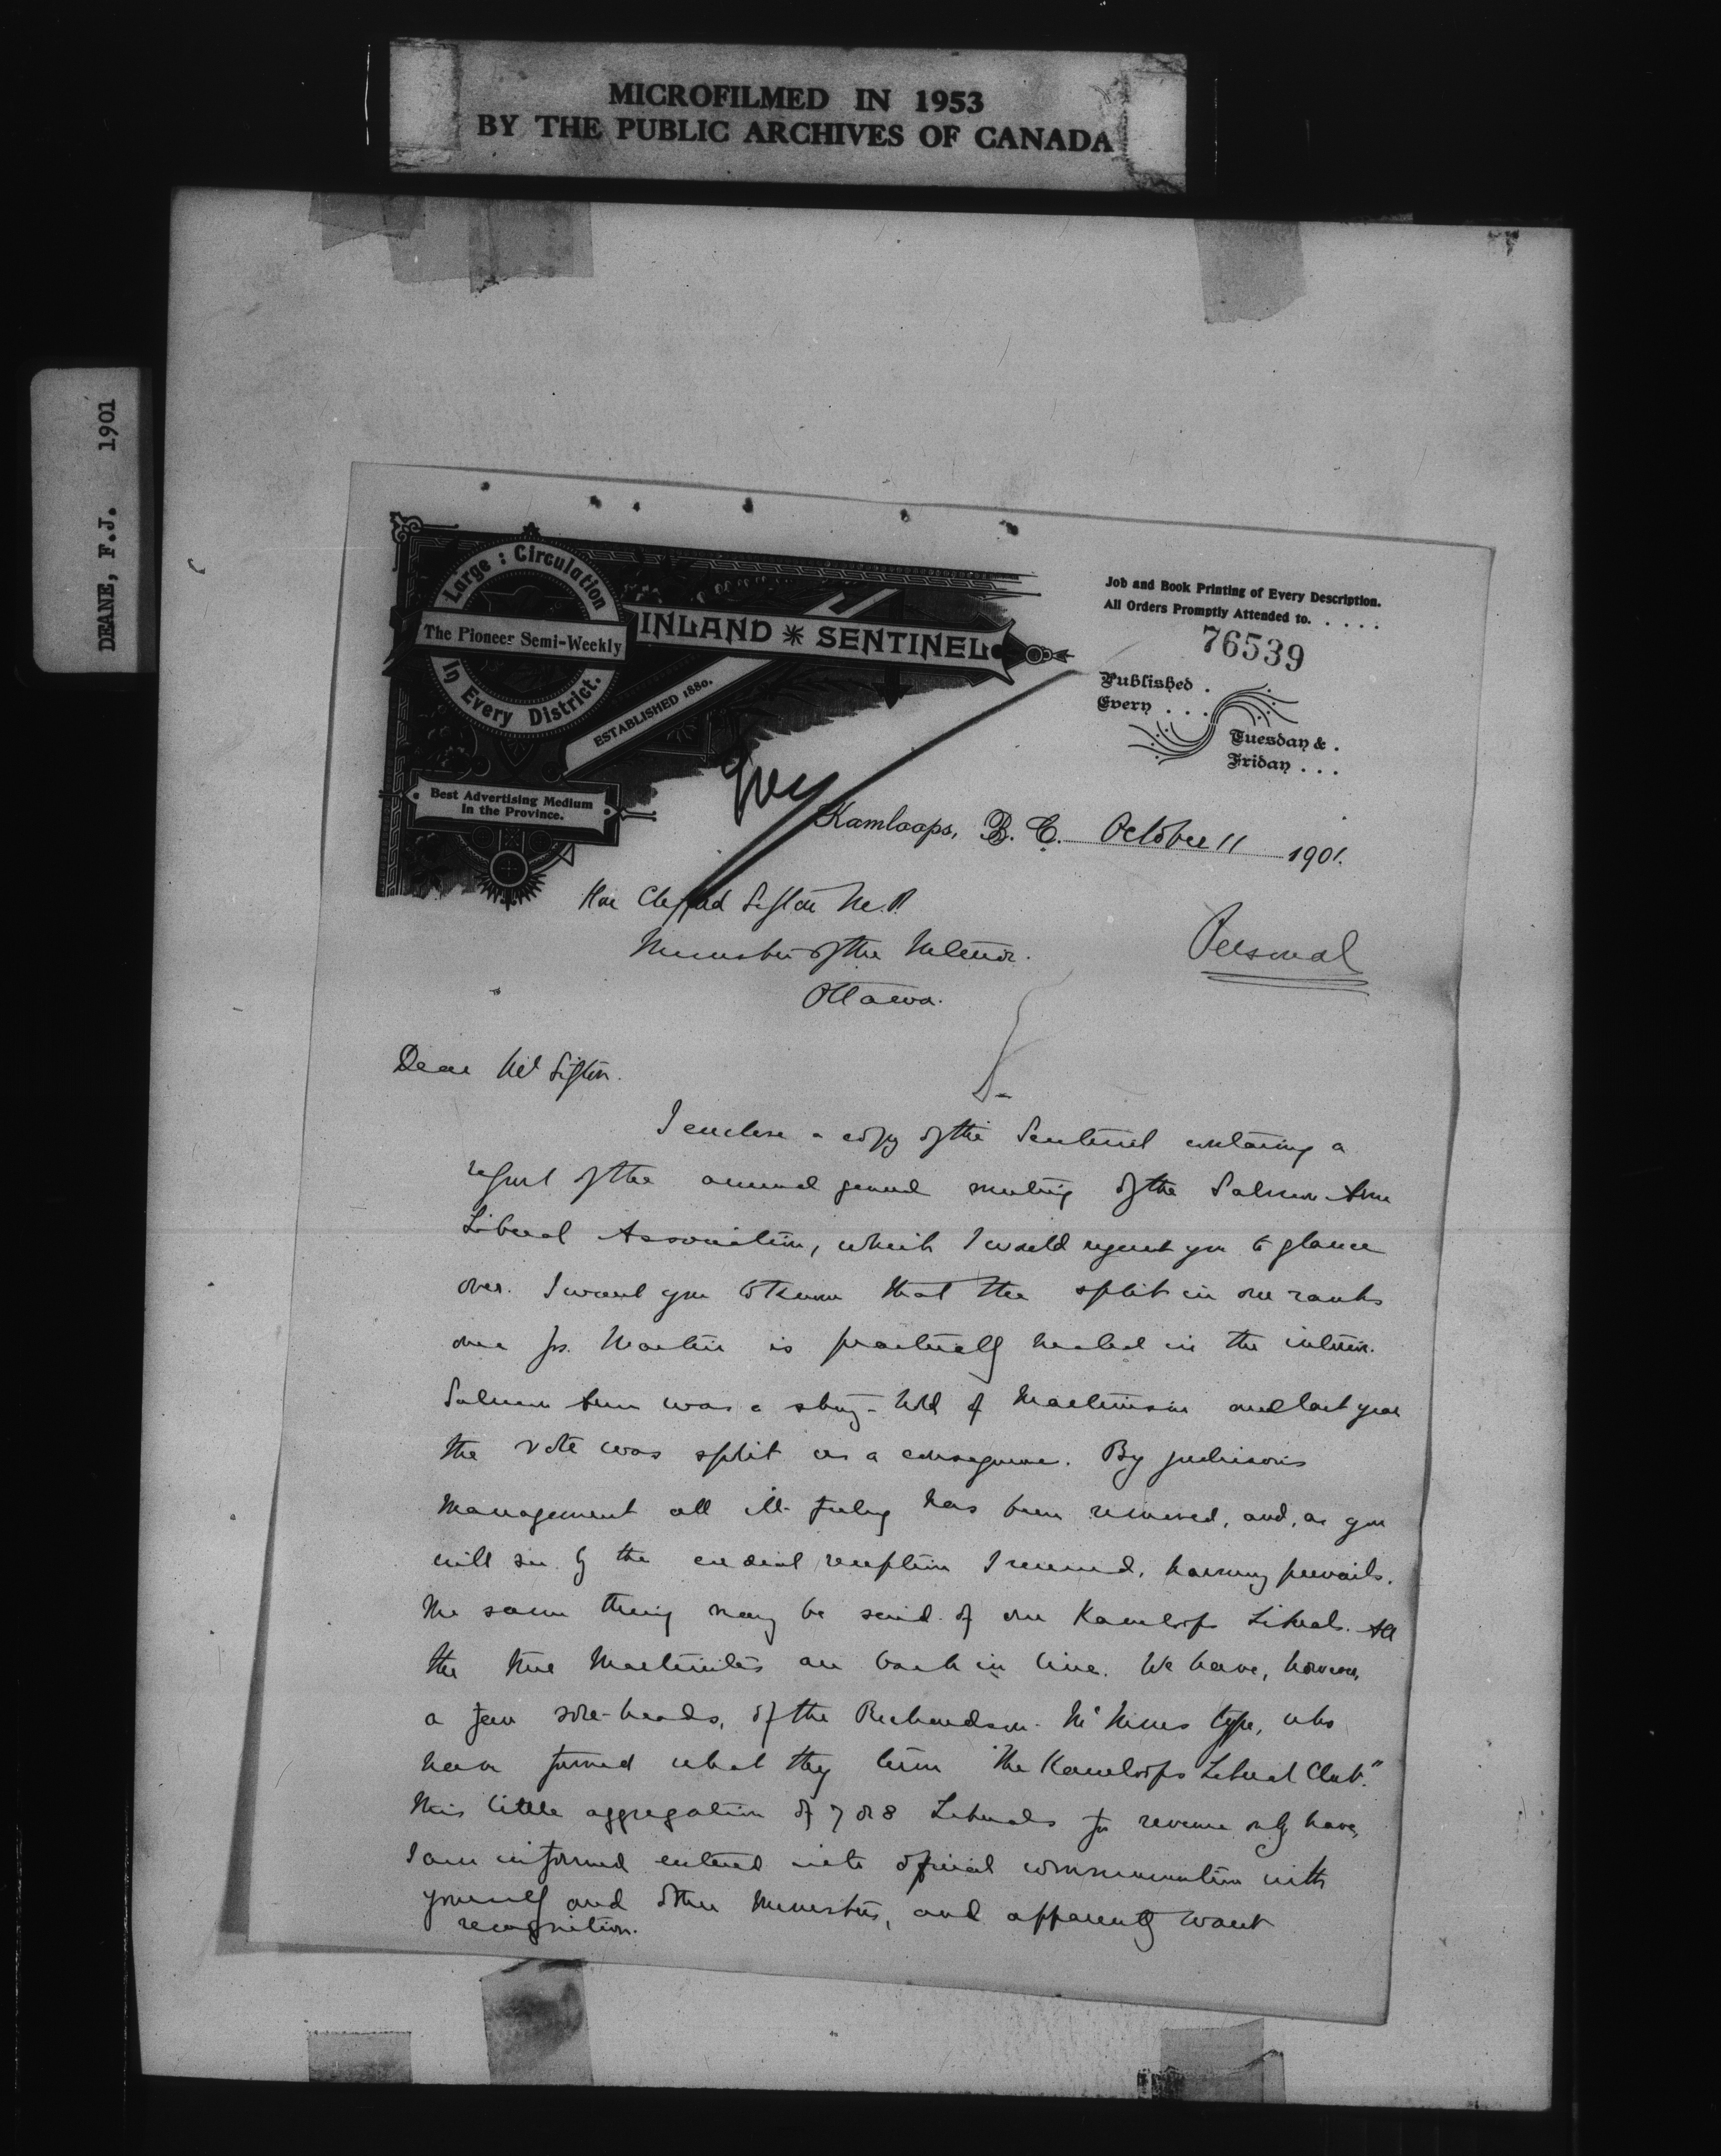 MICROFILMED IN 1953
BY THE PUBLIC ARCHIVES OF CANADA
DEANE, F.J. 1901
Large : Circulation
The Pioneer Semi-Weekly
In Every District.
INLAND * SENTINEL
ESTABLISHED 1880.
Best Advertising Medium
in the Province.
Job and Book Printing of Every Description.
All Orders Promptly Attended to. . . . .
76539
Published .
Every . . .
Tuesday & .
Friday . . .
Kamloops, B. C. October 11 1901.
Hon Clifford Sifton M.P.
Minister of the Interior.
Ottawa.
Personal
Dear Mr Sifton.
I enclose a copy of the Sentinel containing a
report of the annual general meeting of the Salmon Arm
Liberal Association, which I would request you to glance
over. I want you to know that the split in our ranks
over Jos. Martin is practically healed in the interior.
Salmon Arm was a strong-hold of Martinism and last year
the vote was split as a consequence. By judicious
management all ill-feeling has been removed, and, as you
will see by the cordial reception I received, harmony prevails.
The same thing may be said of our Kamloops Liberals. All
the true Martinites are back in line. We have, however,
a few sore-heads, of the Richardson-McInnes type, who
have formed what they term "The Kamloops Liberal Club."
This little aggregation of 7 or 8 Liberals for revenue only have,
I am informed entered into official communication with
yourself and other Ministers, and apparently want
recognition.